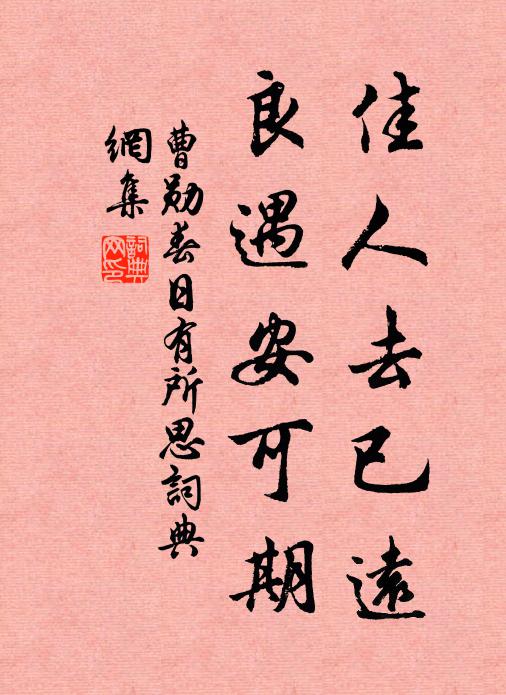 佳人去已遠
良遇安可期
曹勛春日有所思詞典
網集
詞典
网印